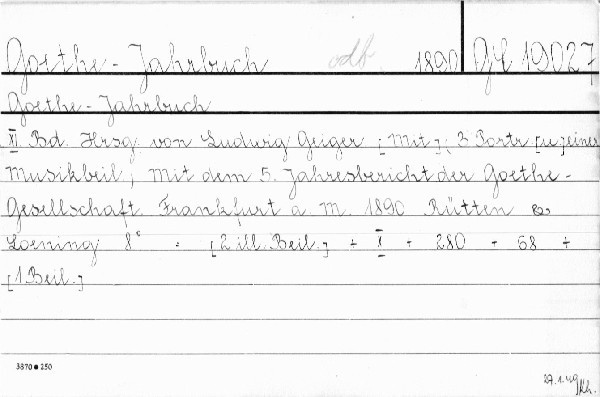 Goethe-Jahrbuch odb. 1890 Gfl 19027
Goethe-Jahrbuch
XI Bd. Hrsg. von Ludwig Geiger [Mit]: 3 Portr [u.] einer
Musikbeil; Mit dem 5. Jahresbericht der Goethe-
Gesellschaft. Frankfurt a. M. 1890 Rütten &
Loening 8° : [2 ill. Beil.] + X + 280 + 58 +
[1 Beil.]
3870 • 250
27.1.49